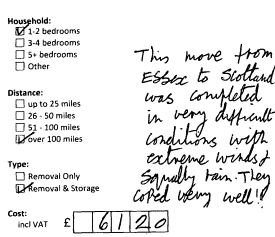 Household:
1-2 bedrooms
3-4 bedrooms
5+ bedrooms
Other
Distance:
up to 25 miles
26 - 50 miles
51 - 100 miles
over 100 miles
Type:
Removal Only
Removal & Storage
Cost:
incl VAT £ 6120
This move from
Essex to Scotland
was completed
in very difficult
conditions with
extreme winds &
Squally rain. They
coped very well!!